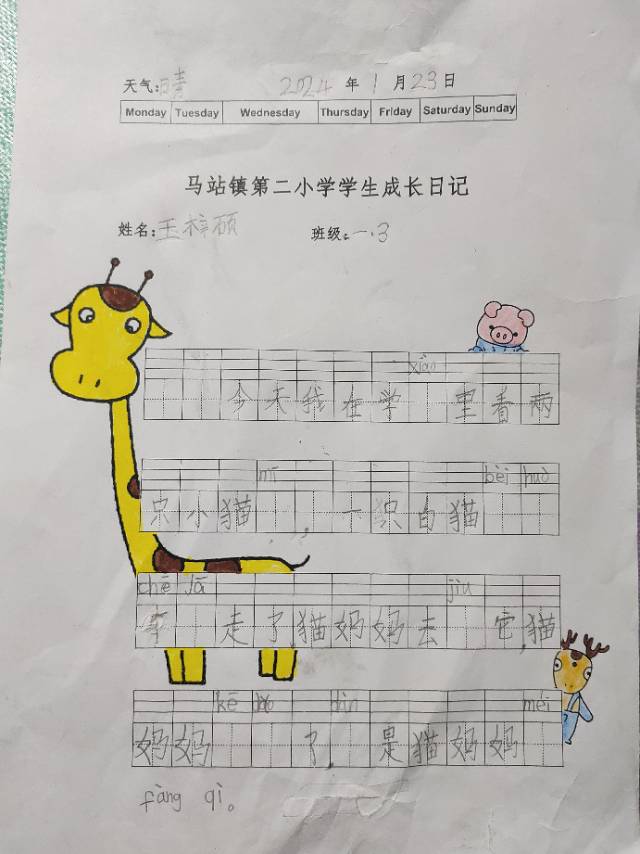 天气:晴 2024 年 1 月 23 日
Monday Tuesday Wednesday Thursday Friday Saturday Sunday
马站镇第二小学学生成长日记
姓名:王梓硕 班级:一.3
xiào
今天我在学 里看两
mī bèi huò
只小猫 , 一只白猫
chē lā jiù
车 走了,猫妈妈去 它,猫
kē dàn méi
妈妈 了,是猫妈妈
fàng qì。